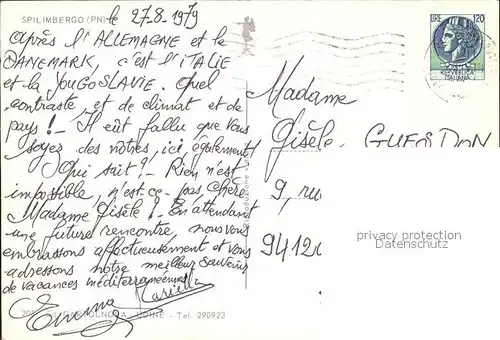 SPILIMBERGO (PN)
le 27-8-1979
Après l'ALLEMAGNE et le
DANEMARK, c'est l'ITALIE
et la YOUGOSLAVIE. Quel
contraste, et de climat et de
pays! - Il eût fallu que vous
soyez des nôtres, ici, également!
Qui sait? - Rien n'est
impossible, n'est-ce-pas, Chère
Madame Gisèle! - En attendant
une future rencontre, nous vous
embrassons affectueusement et vous
adressons notre meilleur souvenir
de vacances méditerranéennes.
UDINE - Tel. 290923
LIRE 120
REPVBBLICA
ITALIANA
Madame
Gisèle GUESDON
9, ru
9412
privacy protection
Datenschutz